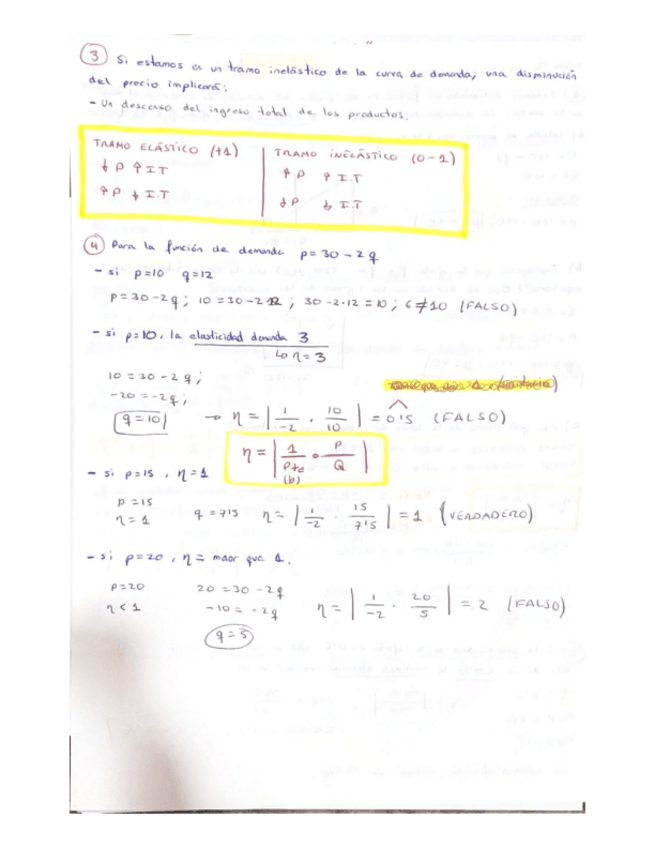 3 Si estamos en un tramo inelástico de la curva de demanda, una disminución
del precio implicará:
- Un descenso del ingreso total de los productos.
TRAMO ELÁSTICO (+1)
↓ P ↑ I.T
↑ P ↓ I.T
TRAMO INELÁSTICO (0-1)
↑ P ↑ I.T
↓ P ↓ I.T
4 Para la función de demanda p = 30 - 2q
- si p=10 q=12
p = 30-2q ; 10 = 30-2·12 ; 30-2·12 = 10 ; 6 ≠ 10 (FALSO)
- si p=10, la elasticidad demanda 3
↳ η = 3
10 = 30 - 2q ;
-20 = -2q ;
q = 10 → η = | 1/-2 · 10/10 | = 0'5 (FALSO)
η = | 1/Pte (b) · P/Q |
- si p=15, η = 1
p = 15
η = 1
q = 7'5 η = | 1/-2 · 15/7'5 | = 1 (VERDADERO)
- si p=20, η = maor que 1.
p=20
η < 1
20 = 30 - 2q
-10 = -2q
q = 5
η = | 1/-2 · 20/5 | = 2 (FALSO)